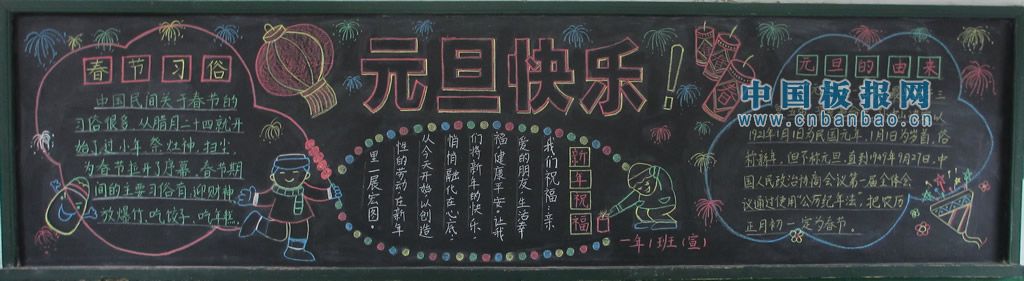 春节习俗
中国民间关于春节的
习俗很多，从腊月二十四就开
始了过小年、祭灶神、扫尘，
为春节拉开了序幕，春节期
间的主要习俗有：迎财神、
放爆竹、吃饺子、吃年糕。
元旦快乐！
新年祝福
我们祝福：亲
爱的朋友，生活幸
福，健康平安。让我
们将新年的快乐，
悄悄融化在心底，
从今天开始以创造
性的劳动，在新年
里一展宏图。
一年1班（宣）
元旦的由来
中国板报网
www.cnbanbao.cn
1922年1月1日为民国元年，1月1日为岁首，俗
称新年，但不称元旦，直到1949年9月27日，中
国人民政治协商会议第一届全体会
议通过使用“公历纪年法”，把农历
正月初一定为春节。